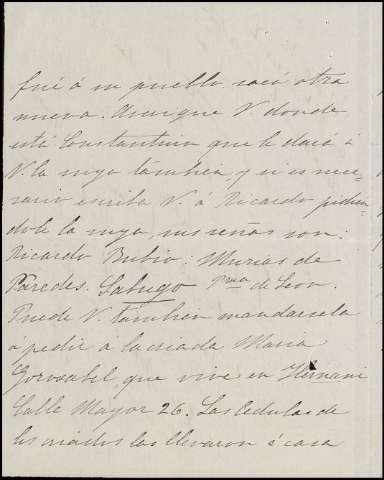 fué á su pueblo sacó otra
nueva. Averigue V donde
está Constantina que le dará á
V. la suya tambien y si es nece-
sario escriba V. á Ricardo pidien-
dole la suya, sus señas son:
Ricardo Rubio: Murias de
Paredes. Sabugo Pcia de Leon.
Puede V. tambien mandarsela
á pedir á la criada Maria
Gorosabel que vive en Hernani
Calle Mayor 26. Las cedulas de
los criados las llevaron á casa